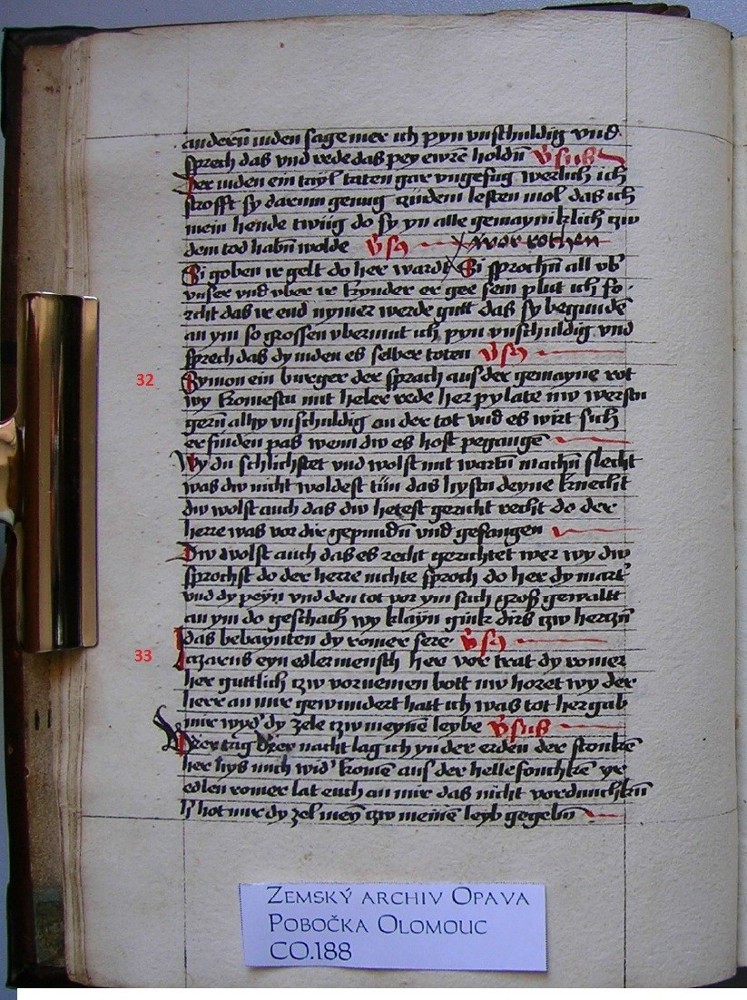 anderen iuden sage mer ich pyn vnschuldig vnd
sprech das vnd rede das pey ewrē holdn̄ v̄sus
Der iuden ein tayl taten gar vngefug werlich ich
strofft sy darum genug zu dem lesten mol das ich
mein hende twug do sy yn alle gemayniklich czw
dem tod habn̄ wolde v̄sꝫ
Si goben ir gelt do her wardt Si sprochn̄ all vb̕
vnser vnd vber ir kynder er gee sein plut ich fo
rcht das ir end nymer werde gutt das sy begunde
an ym so grossen vbermut ich pyn vnschuldig vnd
sprech das dy iuden es selber toten v̄sꝫ
32 Symon ein burger der sprach aus der gemayne rot
wy komestu mit heler rede her pylate nw werstu
gern̄ alhy vnschuldig an der tot vnd es wirt sich
erfinden pas wenn dw es host pegangē
Wy du schlichstet vnd wolst mit wortn̄ machn̄ slecht
was dw nicht woldest tün das hystu deyne knecht
dw wolst auch das dw hetest gericht recht do der
herre was vor dir gepundn̄ vnd gefangen
Dw wolst auch das es recht gerichtet wer wy dw
sprochst do der herre nichte sproch do her dy mart̕
vnd dy peyn vnd den tot vor ym sach gros gewaltt
an ym do geschach wy klayn gink dirs czw hertzn̄
das bebaynten dy romer sere v̄sꝫ
33 Lazarus eyn edler mensch her vor trat dy romer
her guttlich czw vornemen bott nw horet wy der
here an mir gewundert hatt ich was tot her gab
mir wyd̕ dy zele czw meynē leybe v̄sus
Drey tag drey nacht lag ich yn der erden der stonkē
her hys mich wid̕ komē aus der helle fonchkē yr
edlen romer lat euch an mir das nicht vordunchkn̄
Er hot mir dy zel meyn czw meinē leyb gegebn̄
Zemský archiv Opava
Pobočka Olomouc
CO.188